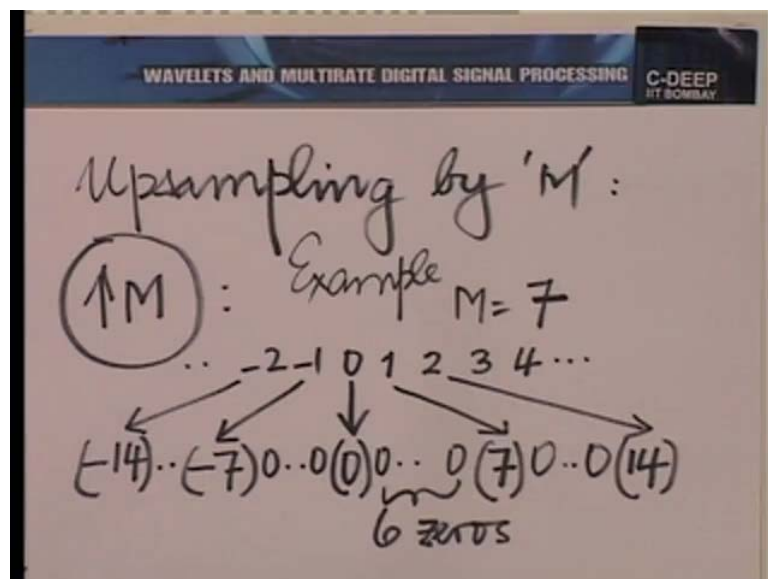 WAVELETS AND MULTIRATE DIGITAL SIGNAL PROCESSING
C-DEEP
IIT BOMBAY
Upsampling by 'M' :
↑M : Example M = 7
.. -2 -1 0 1 2 3 4 ...
(-14)..(-7)0..0(0)0.. 0(7)0..0(14)
6 zeros